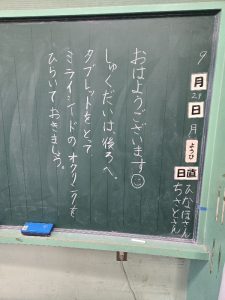 9
月
28
日
月
ようび
日直
ひなほさん
ちさとさん
おはようございます
しゅくだいは、後ろへ。
タブレットをとって
ミライシードのオクリンクを、
ひらいておきましょう。